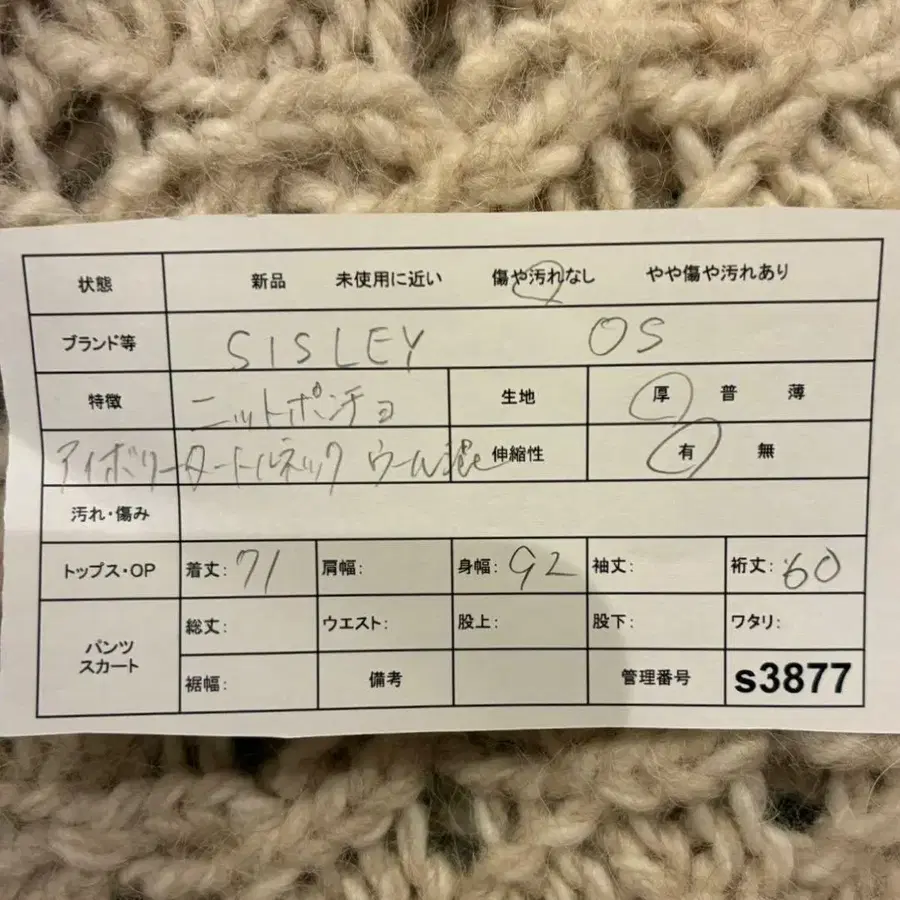 状態 新品 未使用に近い 傷や汚れなし やや傷や汚れあり
ブランド等 SISLEY OS
特徴 ニットポンチョ 生地 厚 普 薄
アイボリータートルネック ウール混 伸縮性 有 無
汚れ・傷み
トップス・OP 着丈: 71 肩幅: 身幅: 92 袖丈: 裄丈: 60
パンツ スカート 総丈: ウエスト: 股上: 股下: ワタリ:
裾幅: 備考 管理番号 s3877